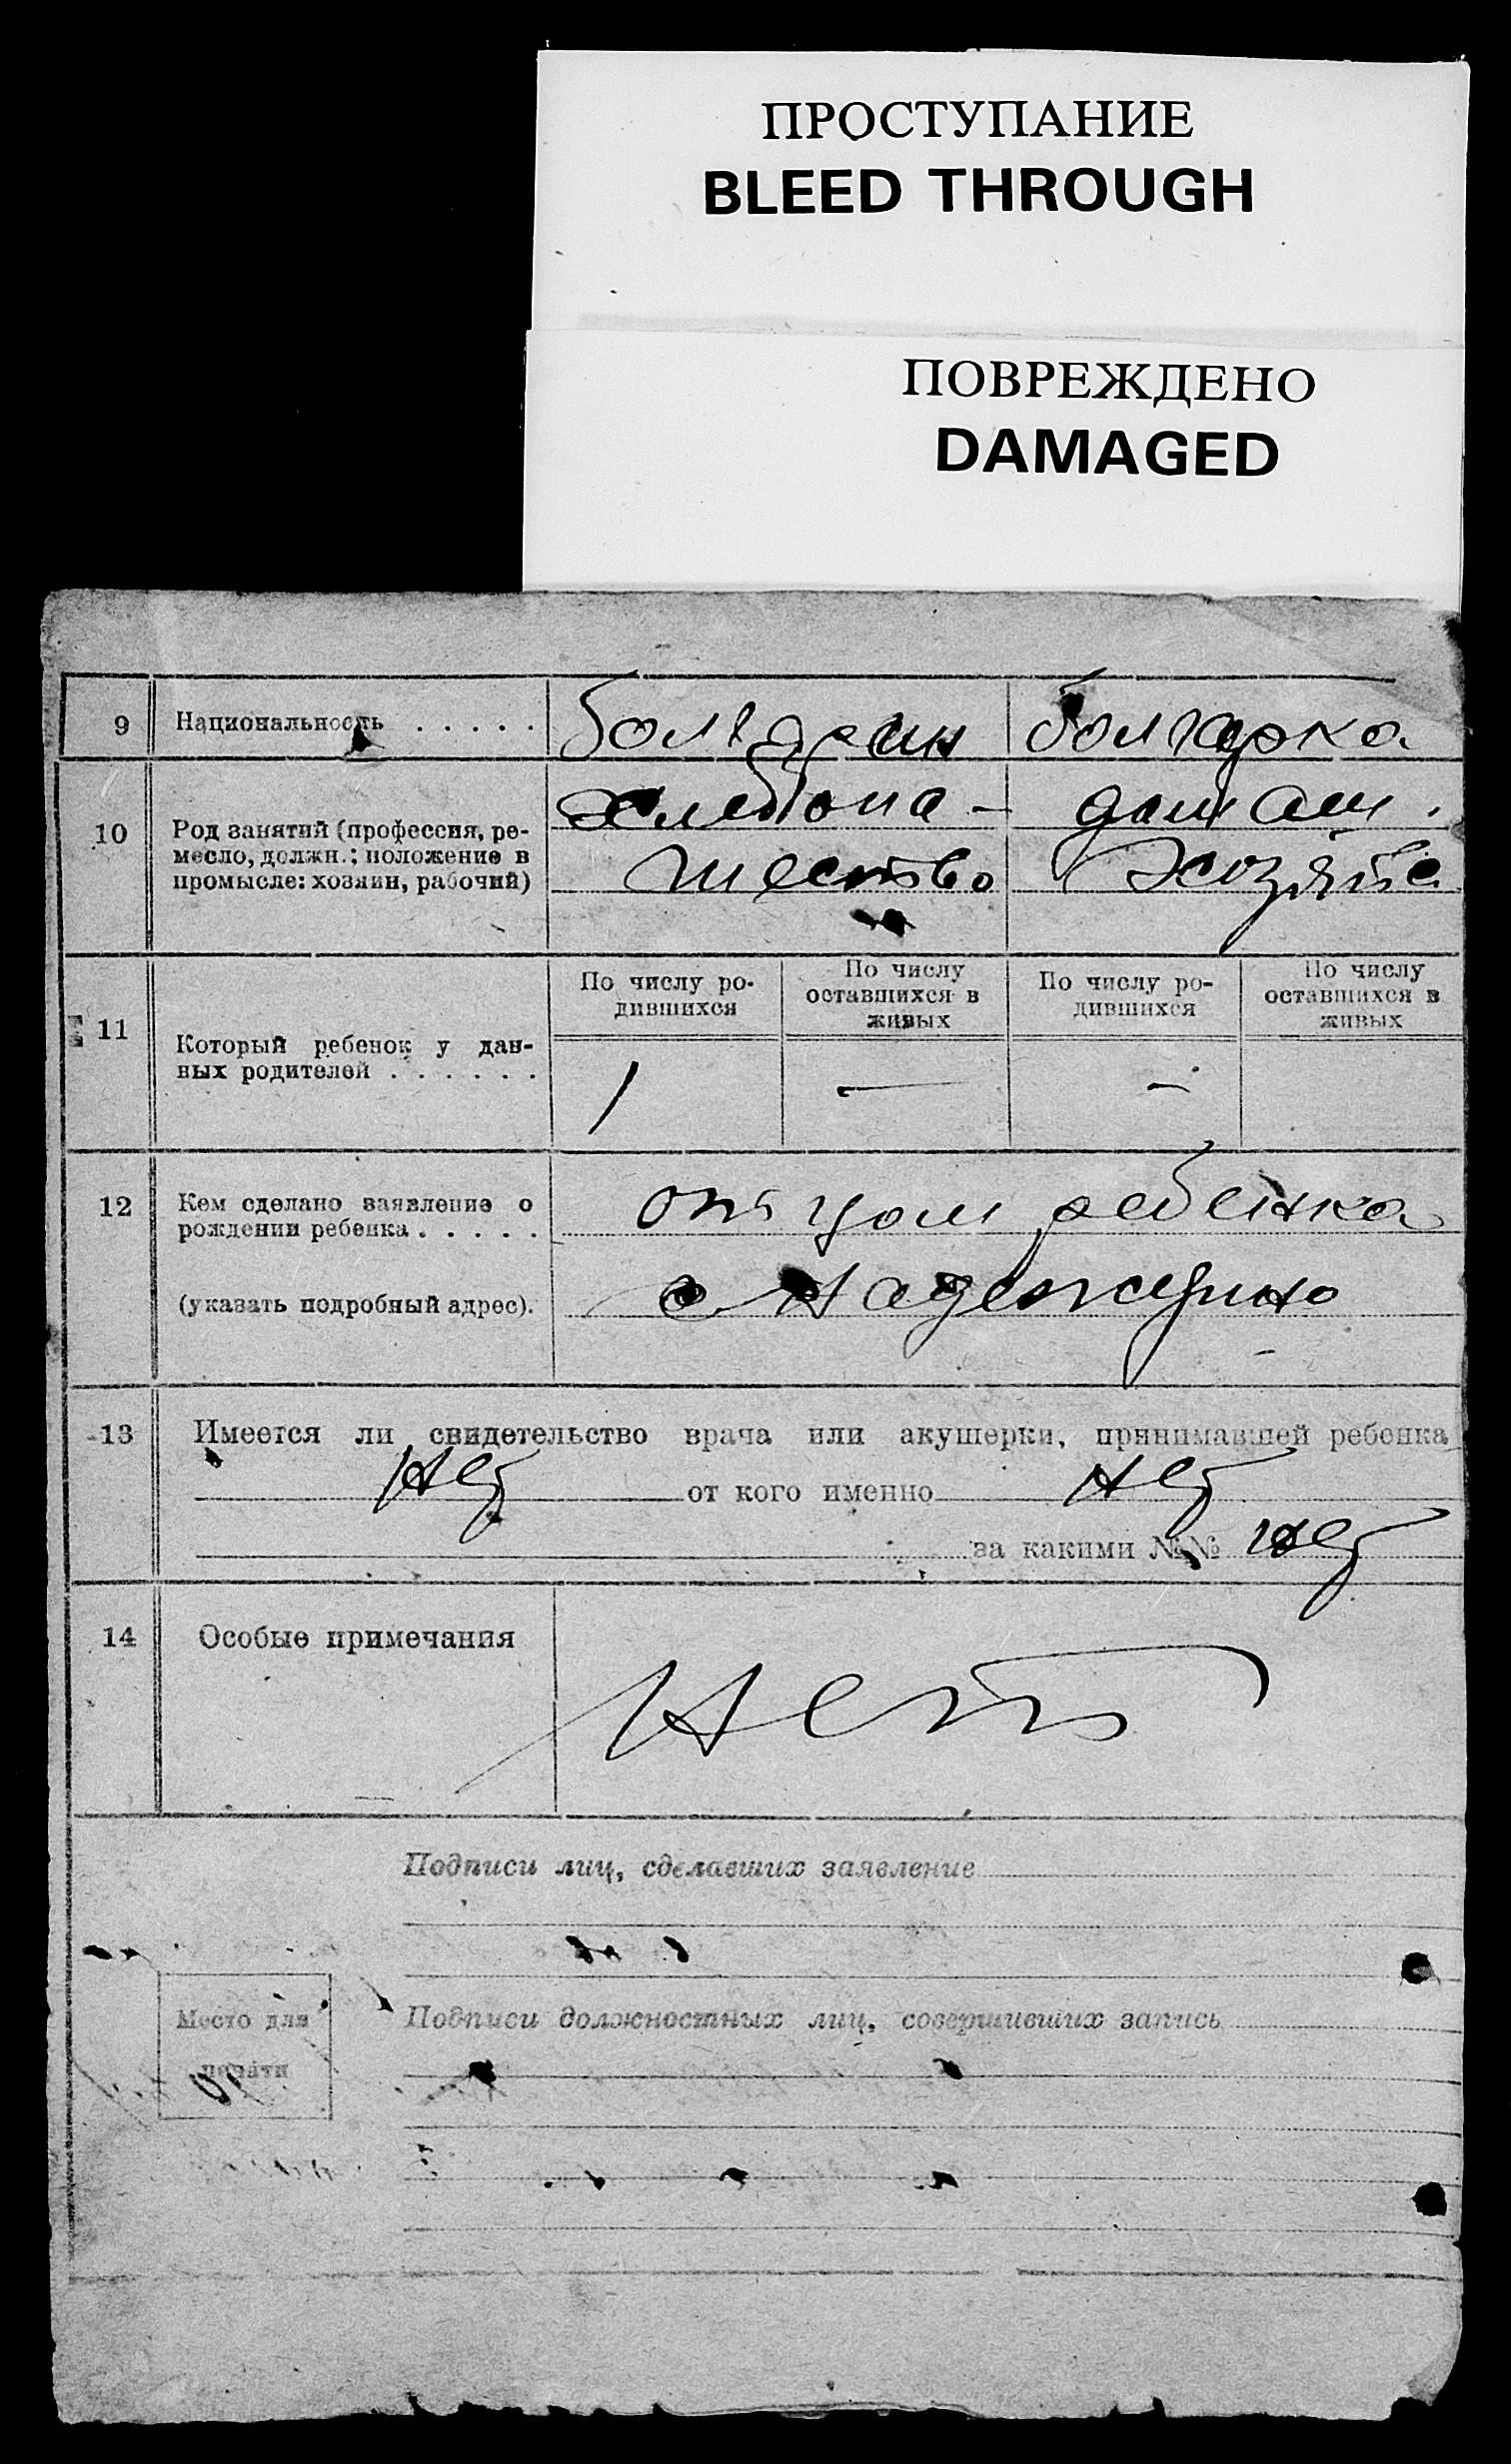 ПРОСТУПАНИЕ
BLEED THROUGH
ПОВРЕЖДЕНО
DAMAGED
9 Национальность . . . . . болгарин болгарка
10 Род занятий (профессия, ре- хлебопа- домаш.
месло, должн.; положение в шество хозяйс
промысле: хозяин, рабочий)
11 Который ребенок у дан-
ных родителей . . . . . .
По числу ро-
дившихся
По числу
оставшихся в
живых
По числу ро-
дившихся
По числу
оставшихся в
живых
1 — —
12 Кем сделано заявление о отцом ребенка
рождении ребенка . . . . .
(указать подробный адрес). с Надеждино
13 Имеется ли свидетельство врача или акушерки, принимавшей ребенка
нет от кого именно нет
за какими №№ нет
14 Особые примечания нет
Подписи лиц, сделавших заявление
Место для
печати
Подписи должностных лиц, совершивших запись